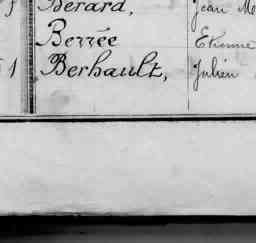 Bérard, Jean M
Berrée Etienne
1 Berhault, Julien